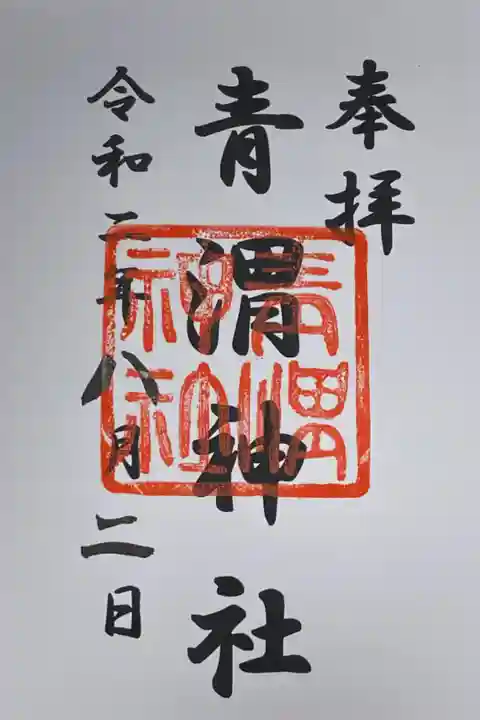 奉拝
青渭神社
令和二年八月二日
青渭神社